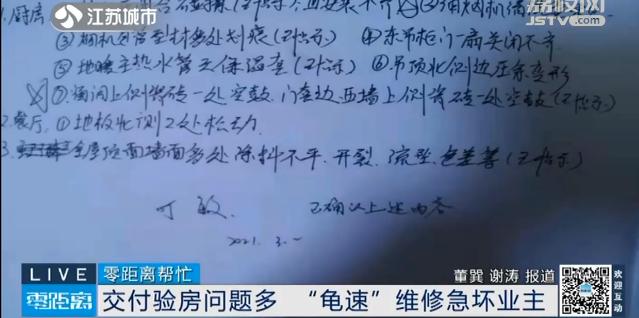 江苏城市
荔枝网
JSTV.com
1.厨房
③烟机外管型材多处划痕(已指示) ④东吊柜门扇关闭不齐
⑤地暖主热水管无保温套(已指示) ⑥吊顶北侧边压条变形
⑦ 侧墙砖一处空鼓,门套边西墙上侧背砖一处空鼓(已指示)
2.餐厅.①地板北侧2处松动.
3. 全屋顶面墙面多处 不平、开裂、流坠、色差等(已指示)
丁敏. 已确认上述内容
2021.3.
LIVE 零距离帮忙 董巽 谢涛 报道
零距离 交付验房问题多 “龟速”维修急坏业主
欢迎互动